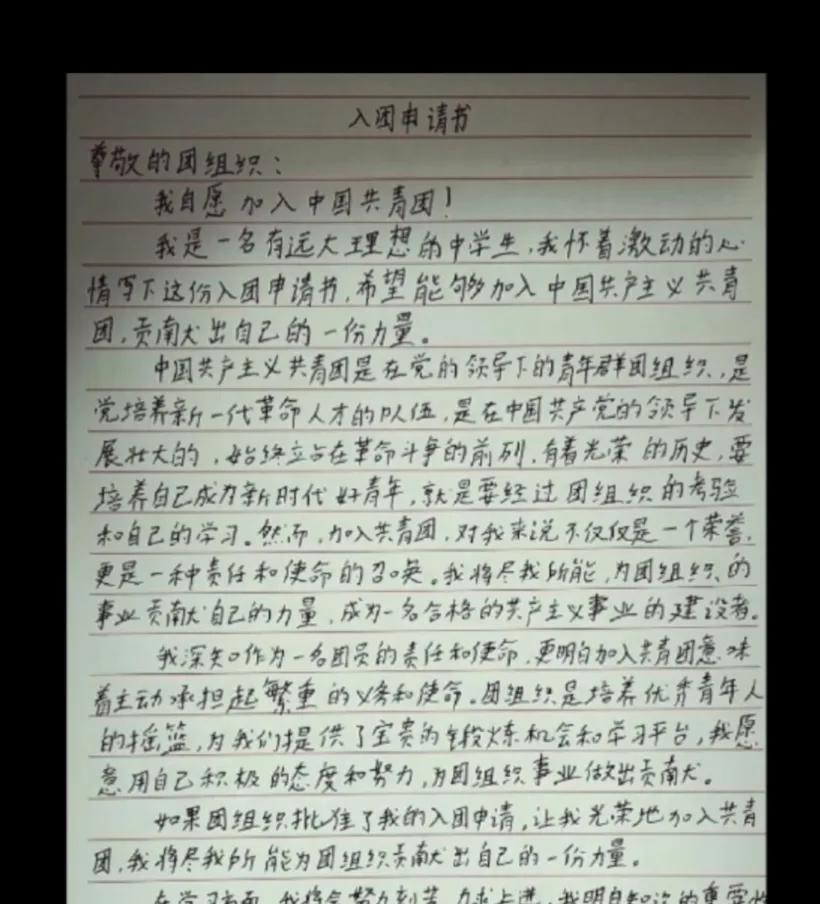 入团申请书
尊敬的团组织：
我自愿加入中国共青团！
我是一名有远大理想的中学生，我怀着激动的心
情写下这份入团申请书，希望能够加入中国共产主义共青
团，贡献出自己的一份力量。
中国共产主义共青团是在党的领导下的青年群团组织，是
党培养新一代革命人才的队伍，是在中国共产党的领导下发
展壮大的，始终立占在革命斗争的前列，有着光荣的历史，要
培养自己成为新时代好青年，就是要经过团组织的考验
和自己的学习。然而，加入共青团，对我来说不仅仅是一个荣誉，
更是一种责任和使命的召唤。我将尽我所能，为团组织的
事业贡献自己的力量，成为一名合格的共产主义事业的建设者。
我深知作为一名团员的责任和使命，更明白加入共青团意味
着主动承担起繁重的义务和使命。团组织是培养优秀青年人
的摇篮，为我们提供了宝贵的锻炼机会和学习平台，我愿
意用自己积极的态度和努力，为团组织事业做出贡献。
如果团组织批准了我的入团申请，让我光荣地加入共青
团，我将尽我所能为团组织贡献出自己的一份力量。
在学习方面，我将会努力刻苦，力求上进，我明白知识的重要性